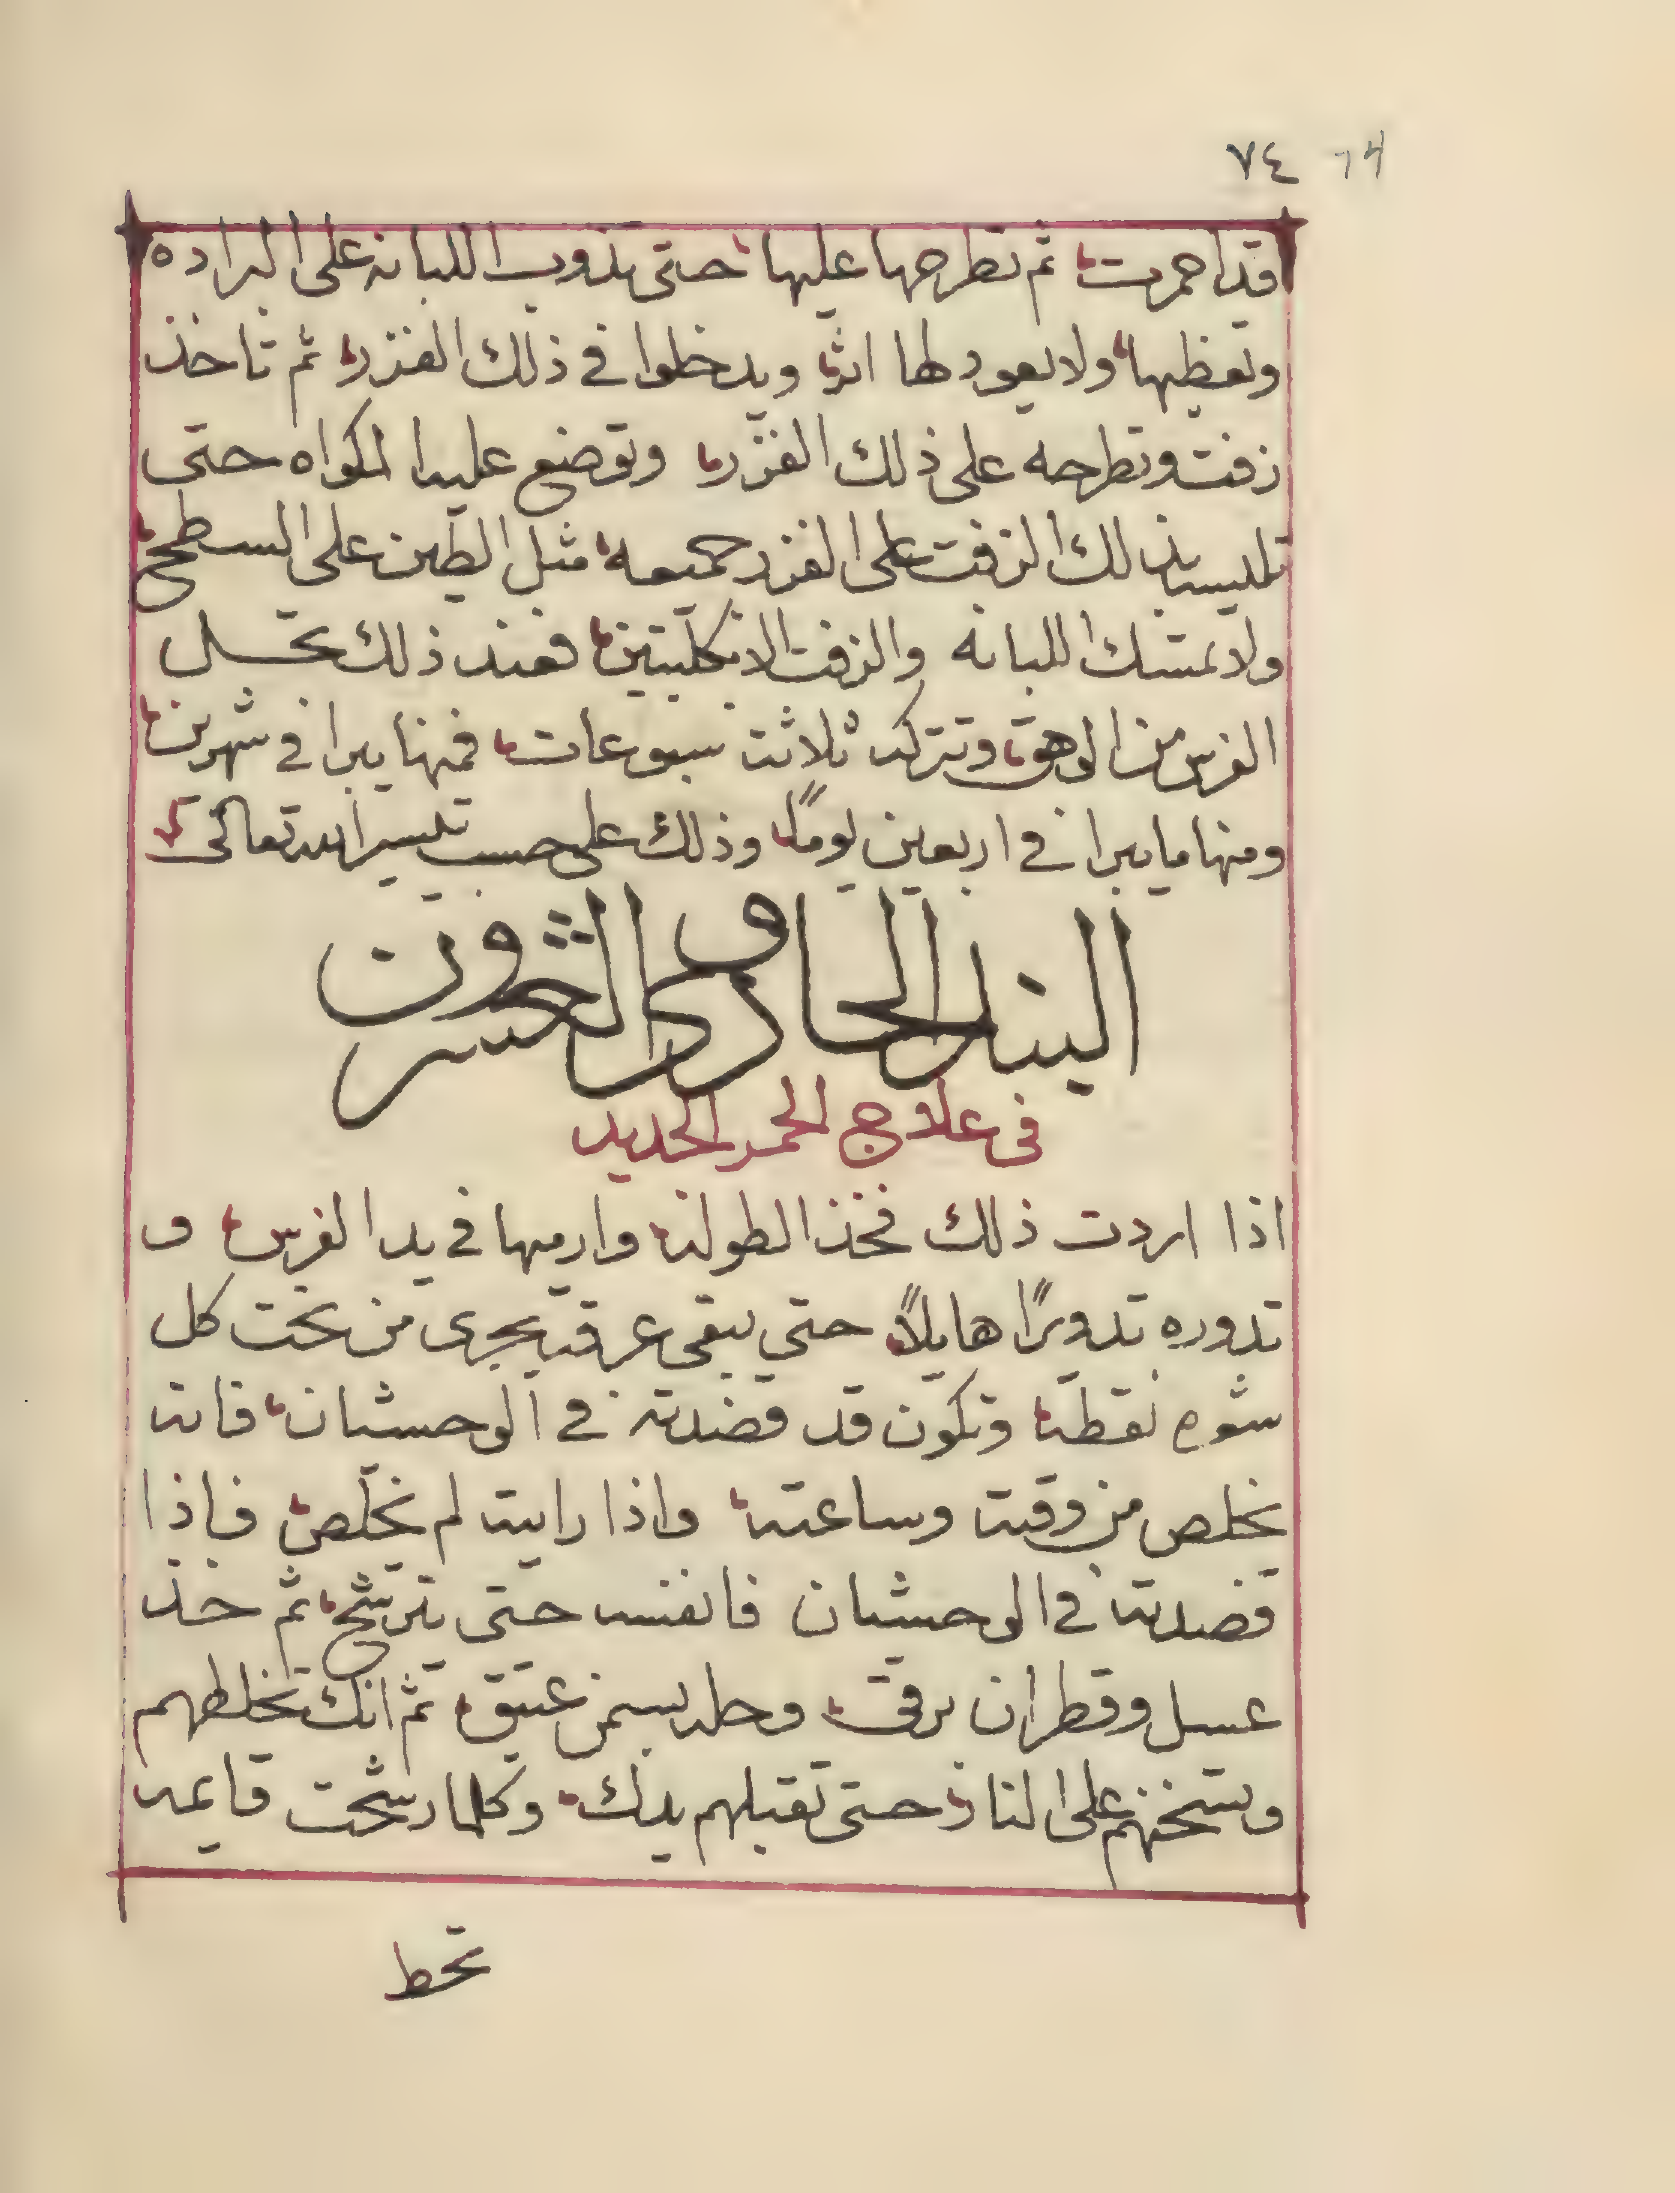 ٧٤ 74
قد احمرت ثم تطرحها عليها حتى تذوب اللبانه على البراده
وتغظيها ولا يعود لها اثر ويدخلوا في ذلك الغزر ثم تاخذ
زفت وتطرحه على ذلك الغزر وتوضع عليه المكواه حتى
تلبس ذلك الزفت على الغزر جميعه مثل الطين على السطح
ولا تمسك اللبانه والزفت الا بكلبتين فعند ذلك تحل
الفرس من الوهق وتتركه ثلاثت سبوعات فمنها يبرا في شهرين
ومنها ما يبرا في اربعين يومًا وذلك على حسب تيسير الله تعالى
البند الحادي والعشرون
في علاج الحمر الجديد
اذا اردت ذلك فخذ الطوله وارميها في يد الفرس و
تدوره تدويرًا هايلاً حتى يبقى عرقه يجرى من تحت كل
شعره نقطه وتكون قد فضدته في الوحشيان فانه
يخلص من وقته وساعته واذا رايته لم يخلص فاذا
فضدته في الوحشيان فانفسه حتى يترشح ثم خذ
عسل وقطران برقى وحله بسمن عتيق ثم انك تخلطهم
وتسخنهم على النار حتى تقبلهم يدك وكلما رشحت قايمه
تحط